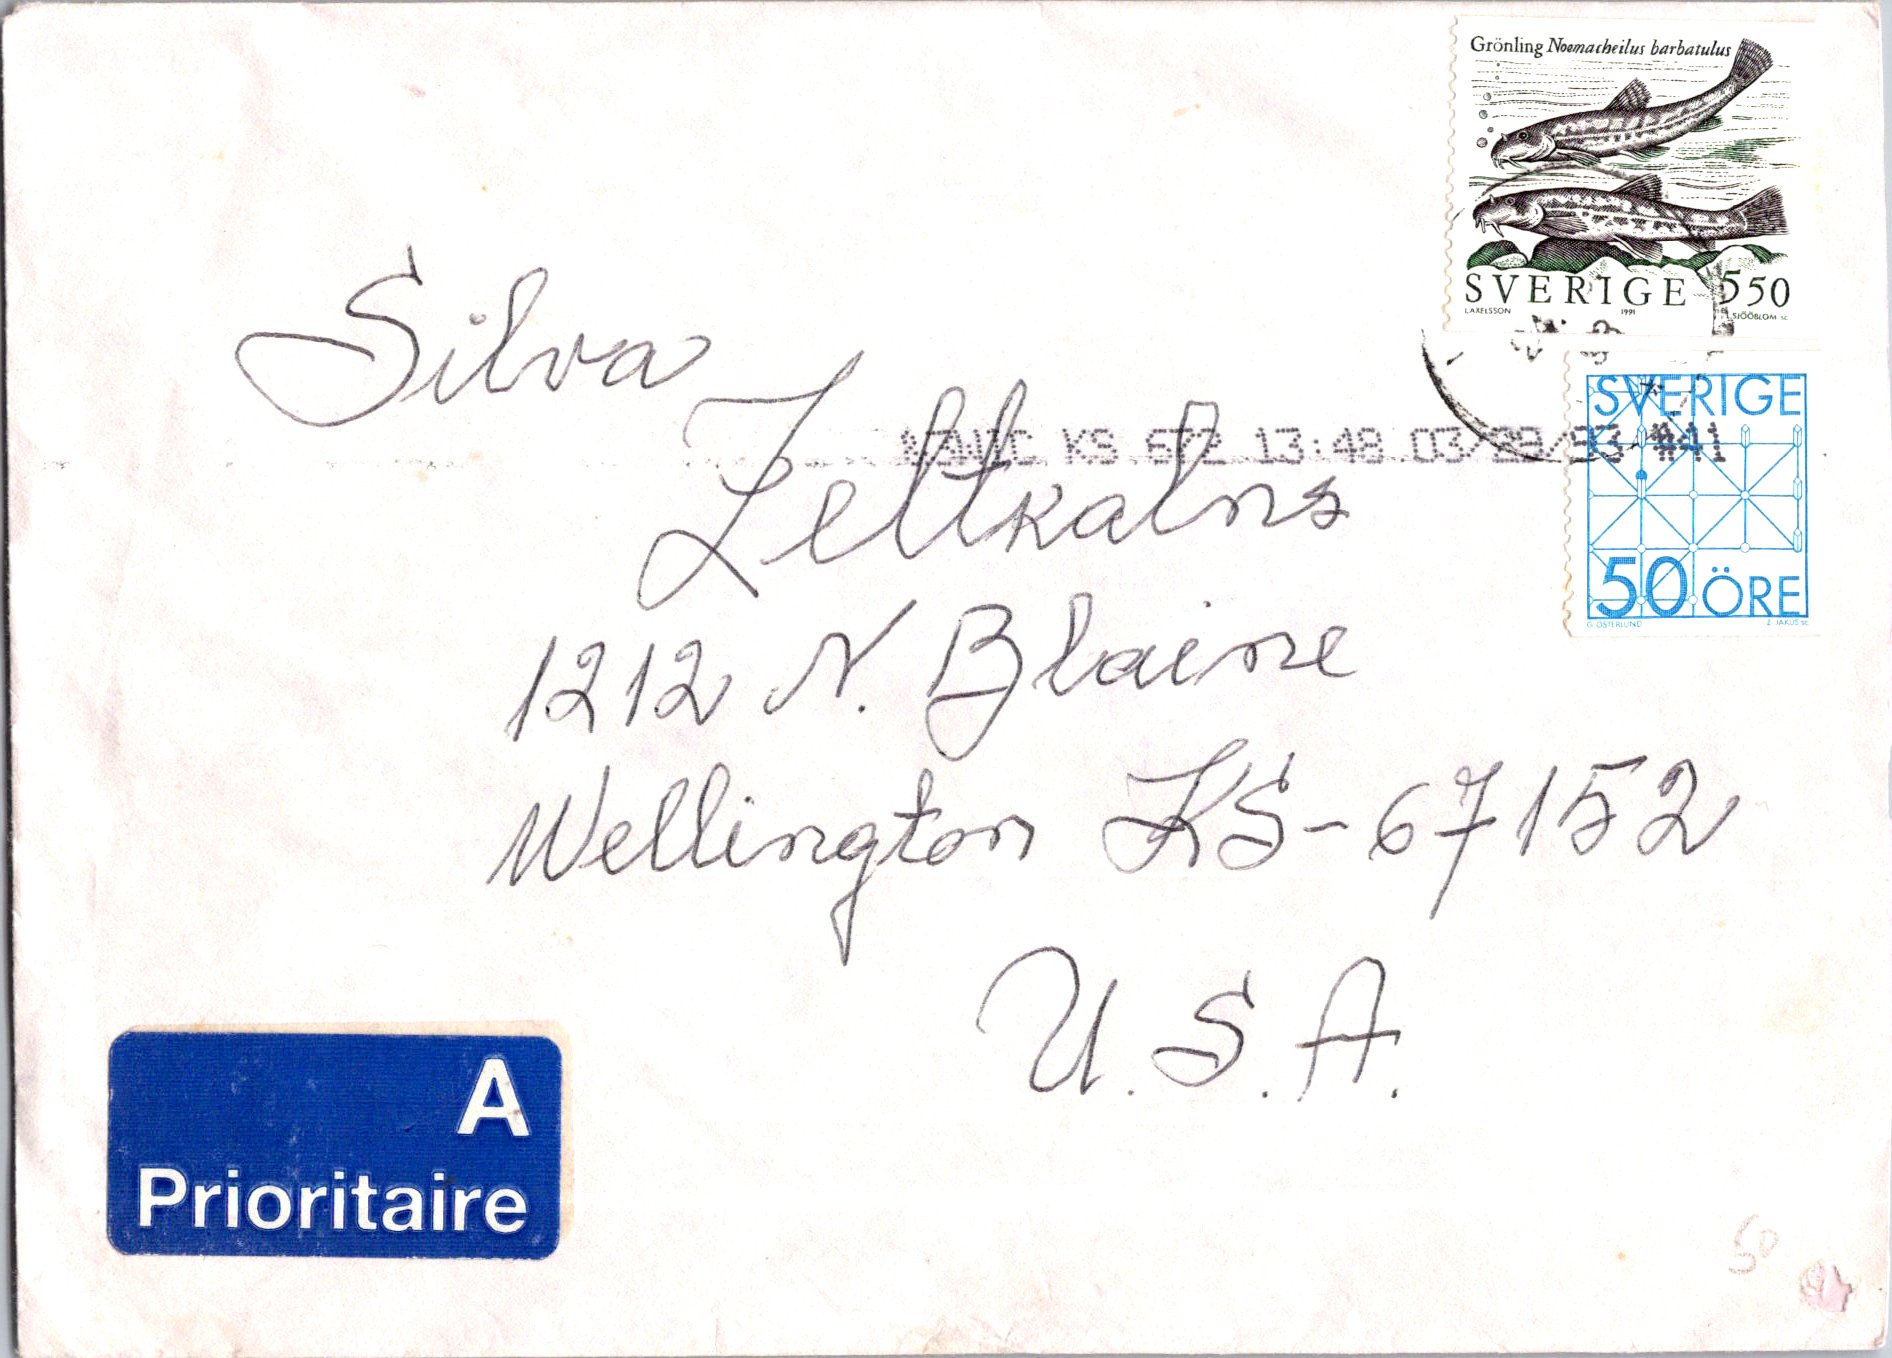 Grönling Noemacheilus barbatulus
SVERIGE 550
L AXELSSON 1991 L SJÖÖBLOM sc
SVERIGE
50 ÖRE
G ÖSTERLUND Z JAKUS sc
KS 672 13:48 03/29/93 #41
Silva
Zeltkalns
1212 N. Blaine
Wellington KS-67152
U.S.A.
A
Prioritaire
50